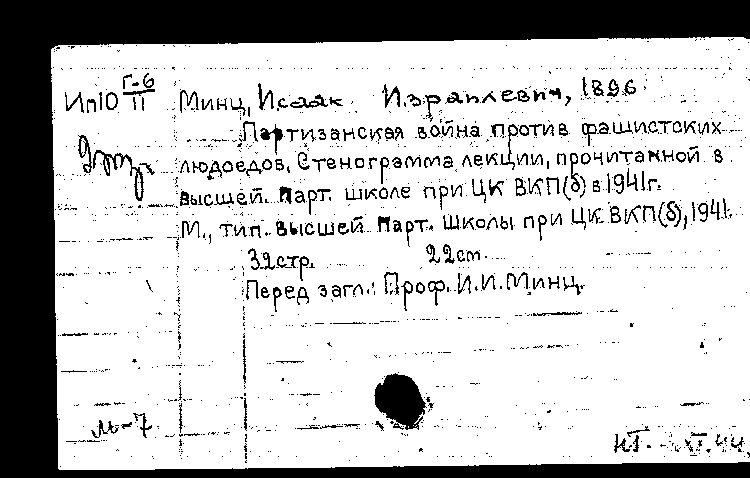 Ип10 Г-6/II Минц, Исаак Израилевич, 1896
Партизанская война против фашистских
людоедов. Стенограмма лекции, прочитанной в
высшей. Парт. школе при ЦК ВКП(б) в 1941г.
М., тип. высшей Парт. Школы при ЦК ВКП(б), 1941.
32стр. 22см.
Перед загл.: Проф. И.И. Минц.
м-7